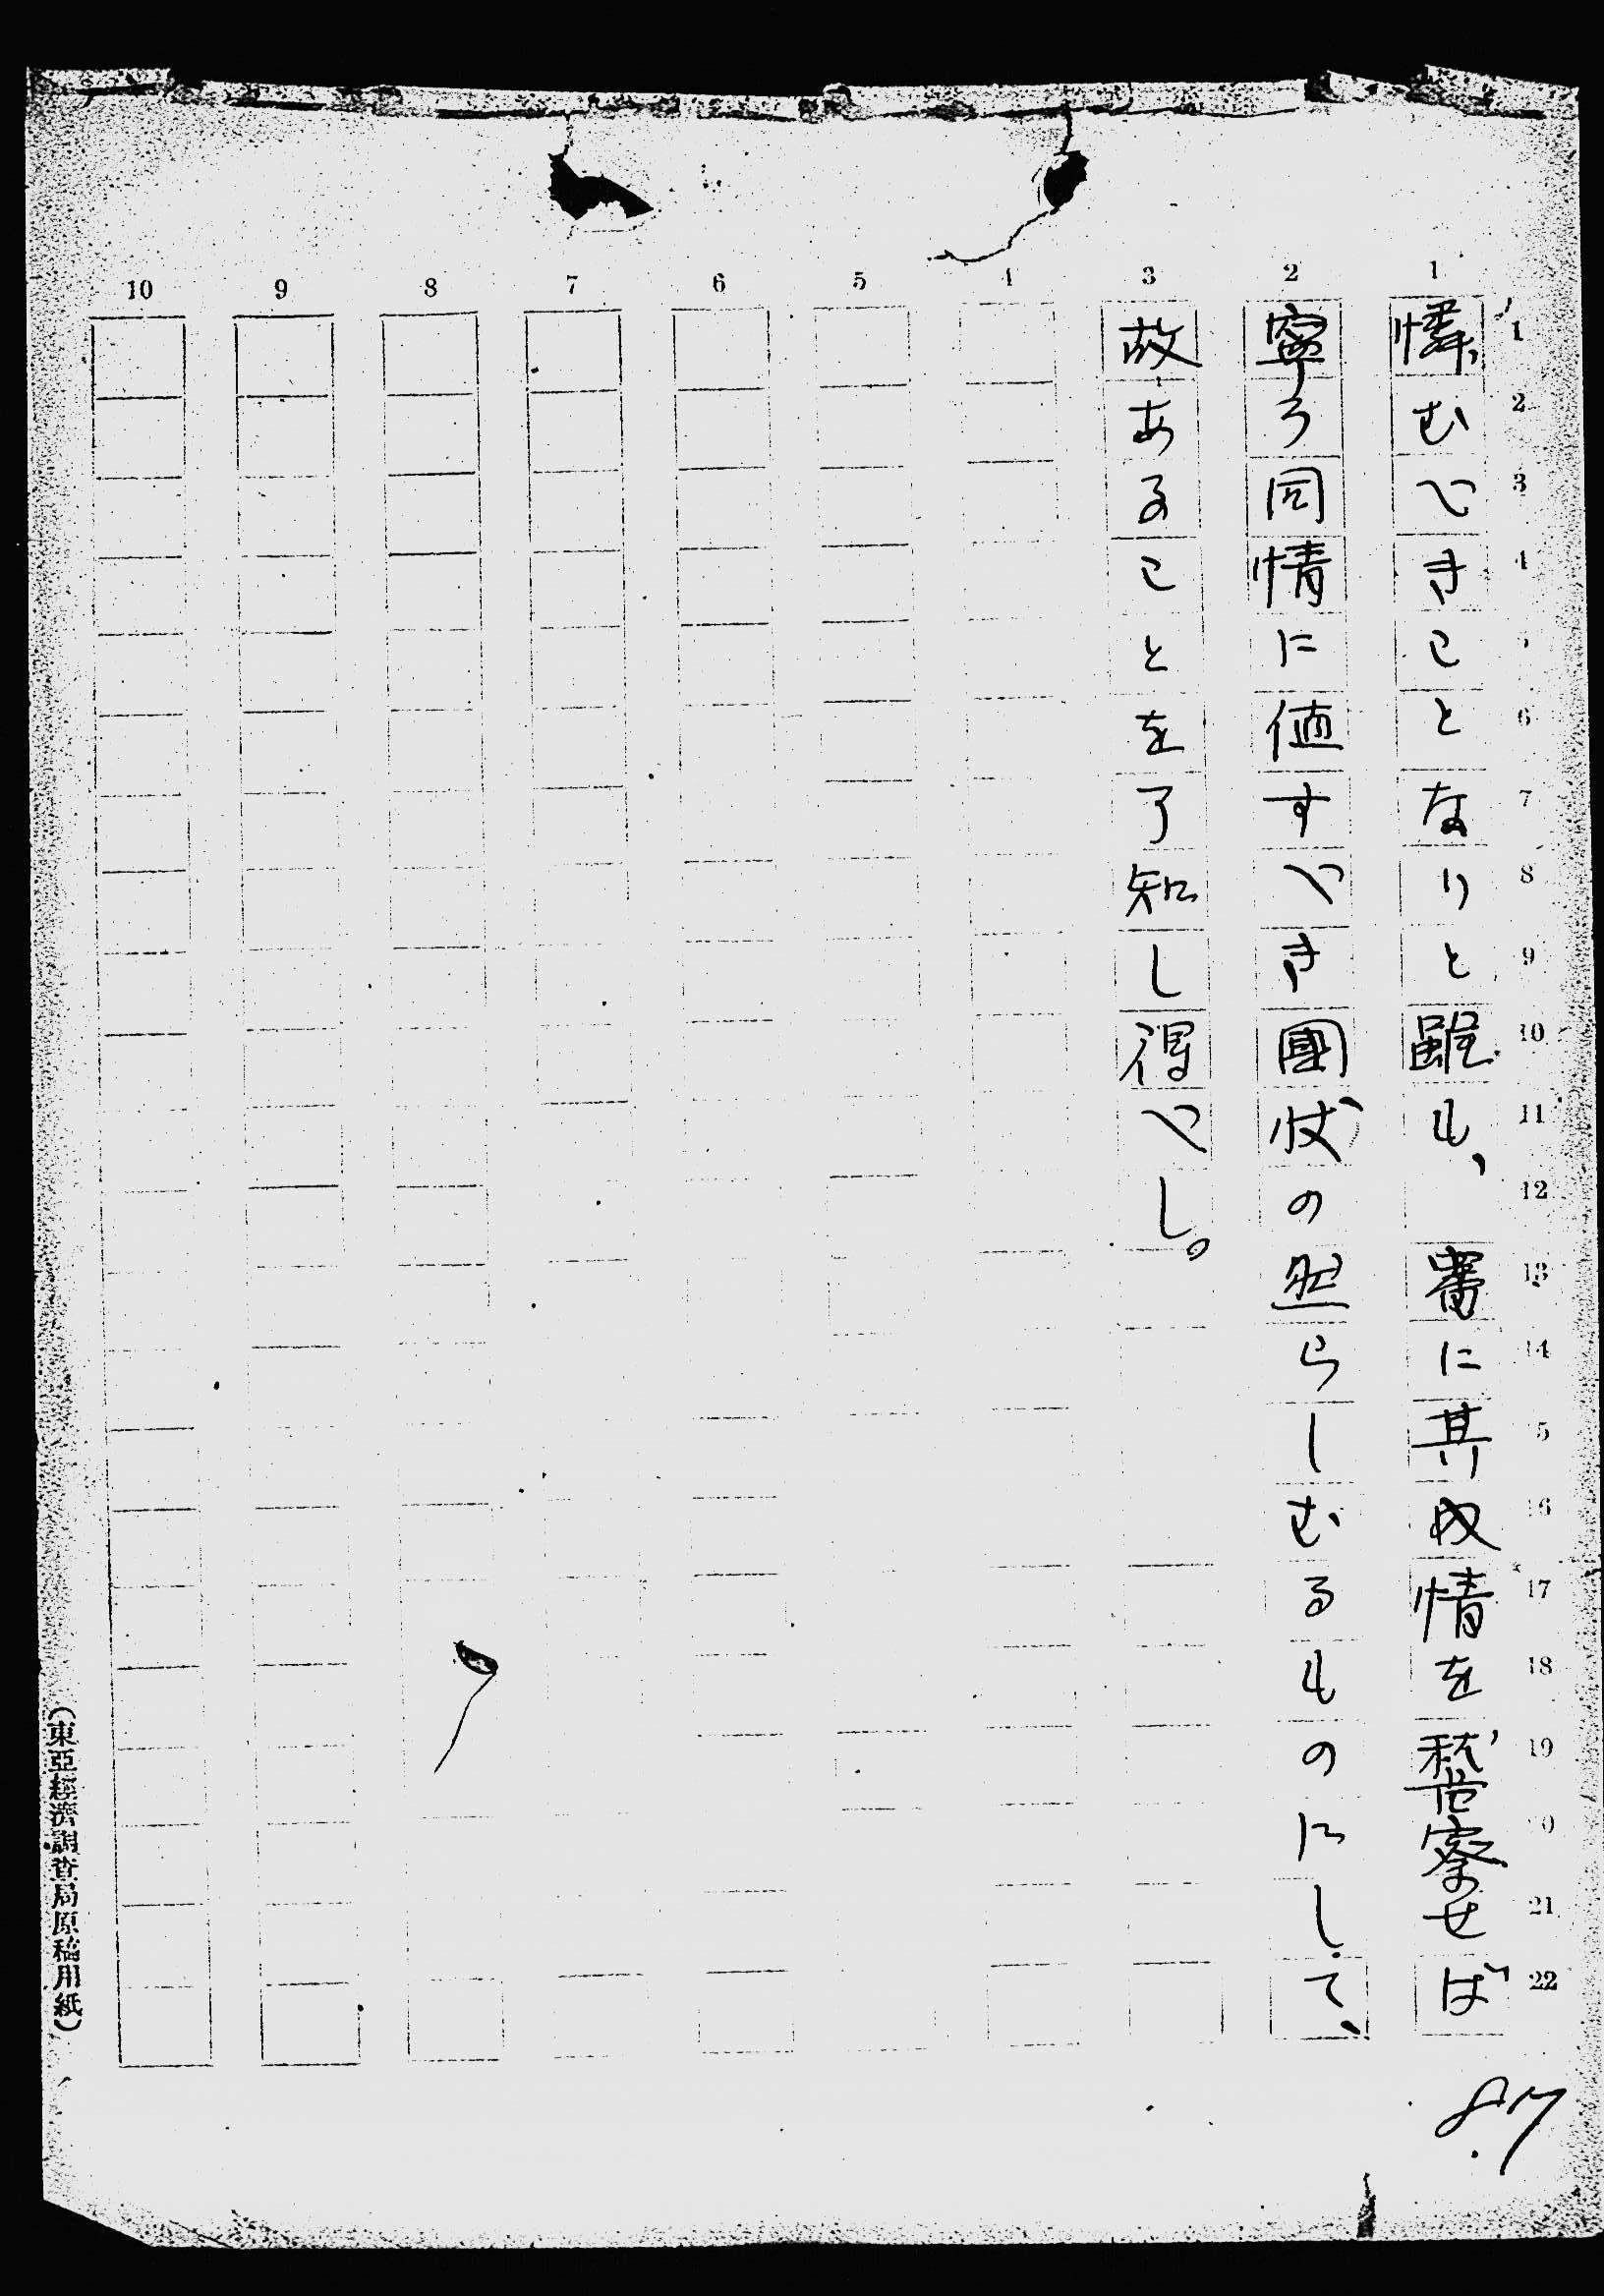 10 9 8 7 6 5 4 3 2 1
憐むべきことなりと雖も、審に其内情を察せば
寧ろ同情に値すべき國状の然らしむるものにして、
故あることを了知し得べし。
87
(東亞經濟調査局原稿用紙)